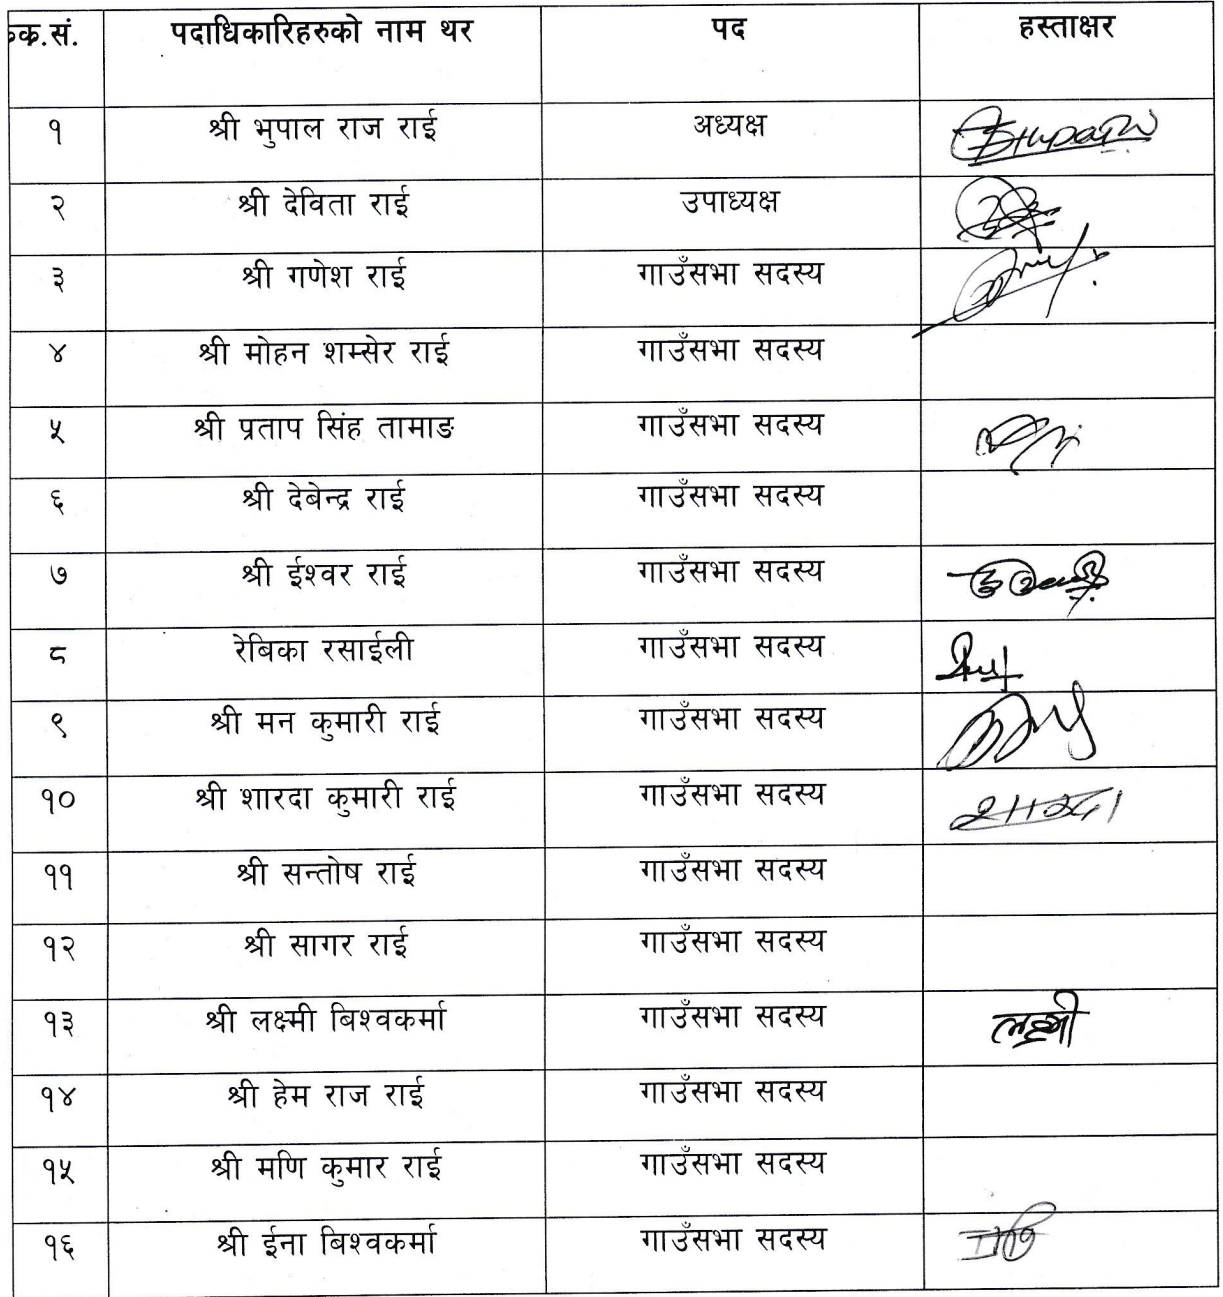 क.सं. पदाधिकारिहरुको नाम थर पद हस्ताक्षर
१ श्री भुपाल राज राई अध्यक्ष
२ श्री देविता राई उपाध्यक्ष
३ श्री गणेश राई गाउँसभा सदस्य
४ श्री मोहन शम्सेर राई गाउँसभा सदस्य
५ श्री प्रताप सिंह तामाङ गाउँसभा सदस्य
६ श्री देबेन्द्र राई गाउँसभा सदस्य
७ श्री ईश्वर राई गाउँसभा सदस्य
८ रेबिका रसाईली गाउँसभा सदस्य
९ श्री मन कुमारी राई गाउँसभा सदस्य
१० श्री शारदा कुमारी राई गाउँसभा सदस्य शारदा
११ श्री सन्तोष राई गाउँसभा सदस्य
१२ श्री सागर राई गाउँसभा सदस्य
१३ श्री लक्ष्मी बिश्वकर्मा गाउँसभा सदस्य लक्ष्मी
१४ श्री हेम राज राई गाउँसभा सदस्य
१५ श्री मणि कुमार राई गाउँसभा सदस्य
१६ श्री ईना बिश्वकर्मा गाउँसभा सदस्य